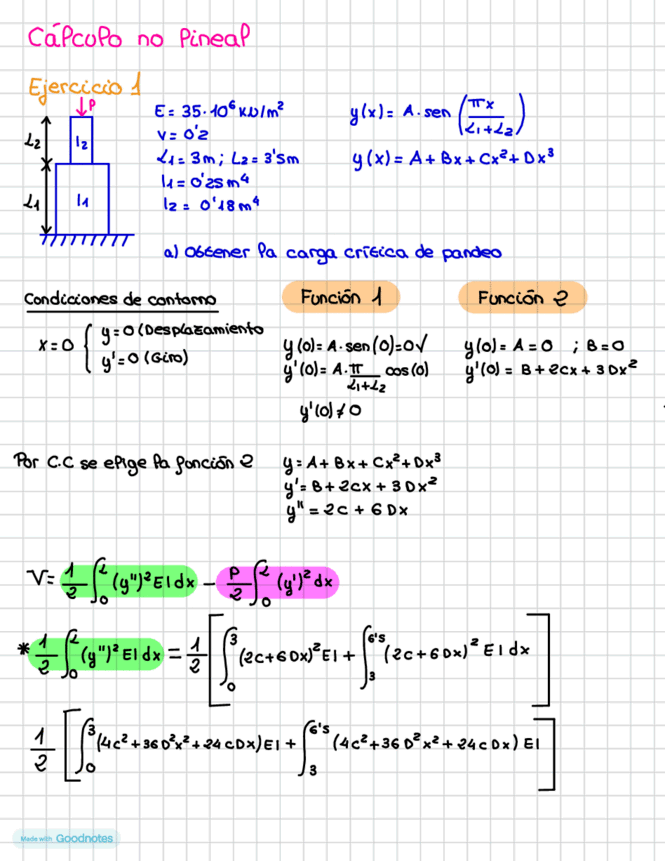 Cálculo no lineal
Ejercicio 1
P
L2
I2
L1
I1
E = 35·10⁶ KN/m²
v = 0'2
L1 = 3m ; L2 = 3'5m
I1 = 0'25 m⁴
I2 = 0'18 m⁴
y(x) = A · sen (πx / (L1+L2))
y(x) = A + Bx + Cx² + Dx³
a) Obtener la carga crítica de pandeo
Condiciones de contorno
x=0 { y=0 (Desplazamiento
y'=0 (Giro)
Función 1
y(0) = A · sen(0) = 0 √
y'(0) = A · π / (L1+L2) cos(0)
y'(0) ≠ 0
Función 2
y(0) = A = 0 ; B = 0
y'(0) = B + 2Cx + 3Dx²
Por C.C se elige la función 2
y = A + Bx + Cx² + Dx³
y' = B + 2Cx + 3Dx²
y'' = 2C + 6Dx
V = 1/2 ∫₀ᴸ (y'')² EI dx - P/2 ∫₀ᴸ (y')² dx
* 1/2 ∫₀ᴸ (y'')² EI dx = 1/2 [ ∫₀³ (2C+6Dx)² EI + ∫₃^6's (2C+6Dx)² EI dx ]
1/2 [ ∫₀³ (4C² + 36D²x² + 24CDx) EI + ∫₃^6's (4C² + 36D²x² + 24CDx) EI ]
Made with Goodnotes